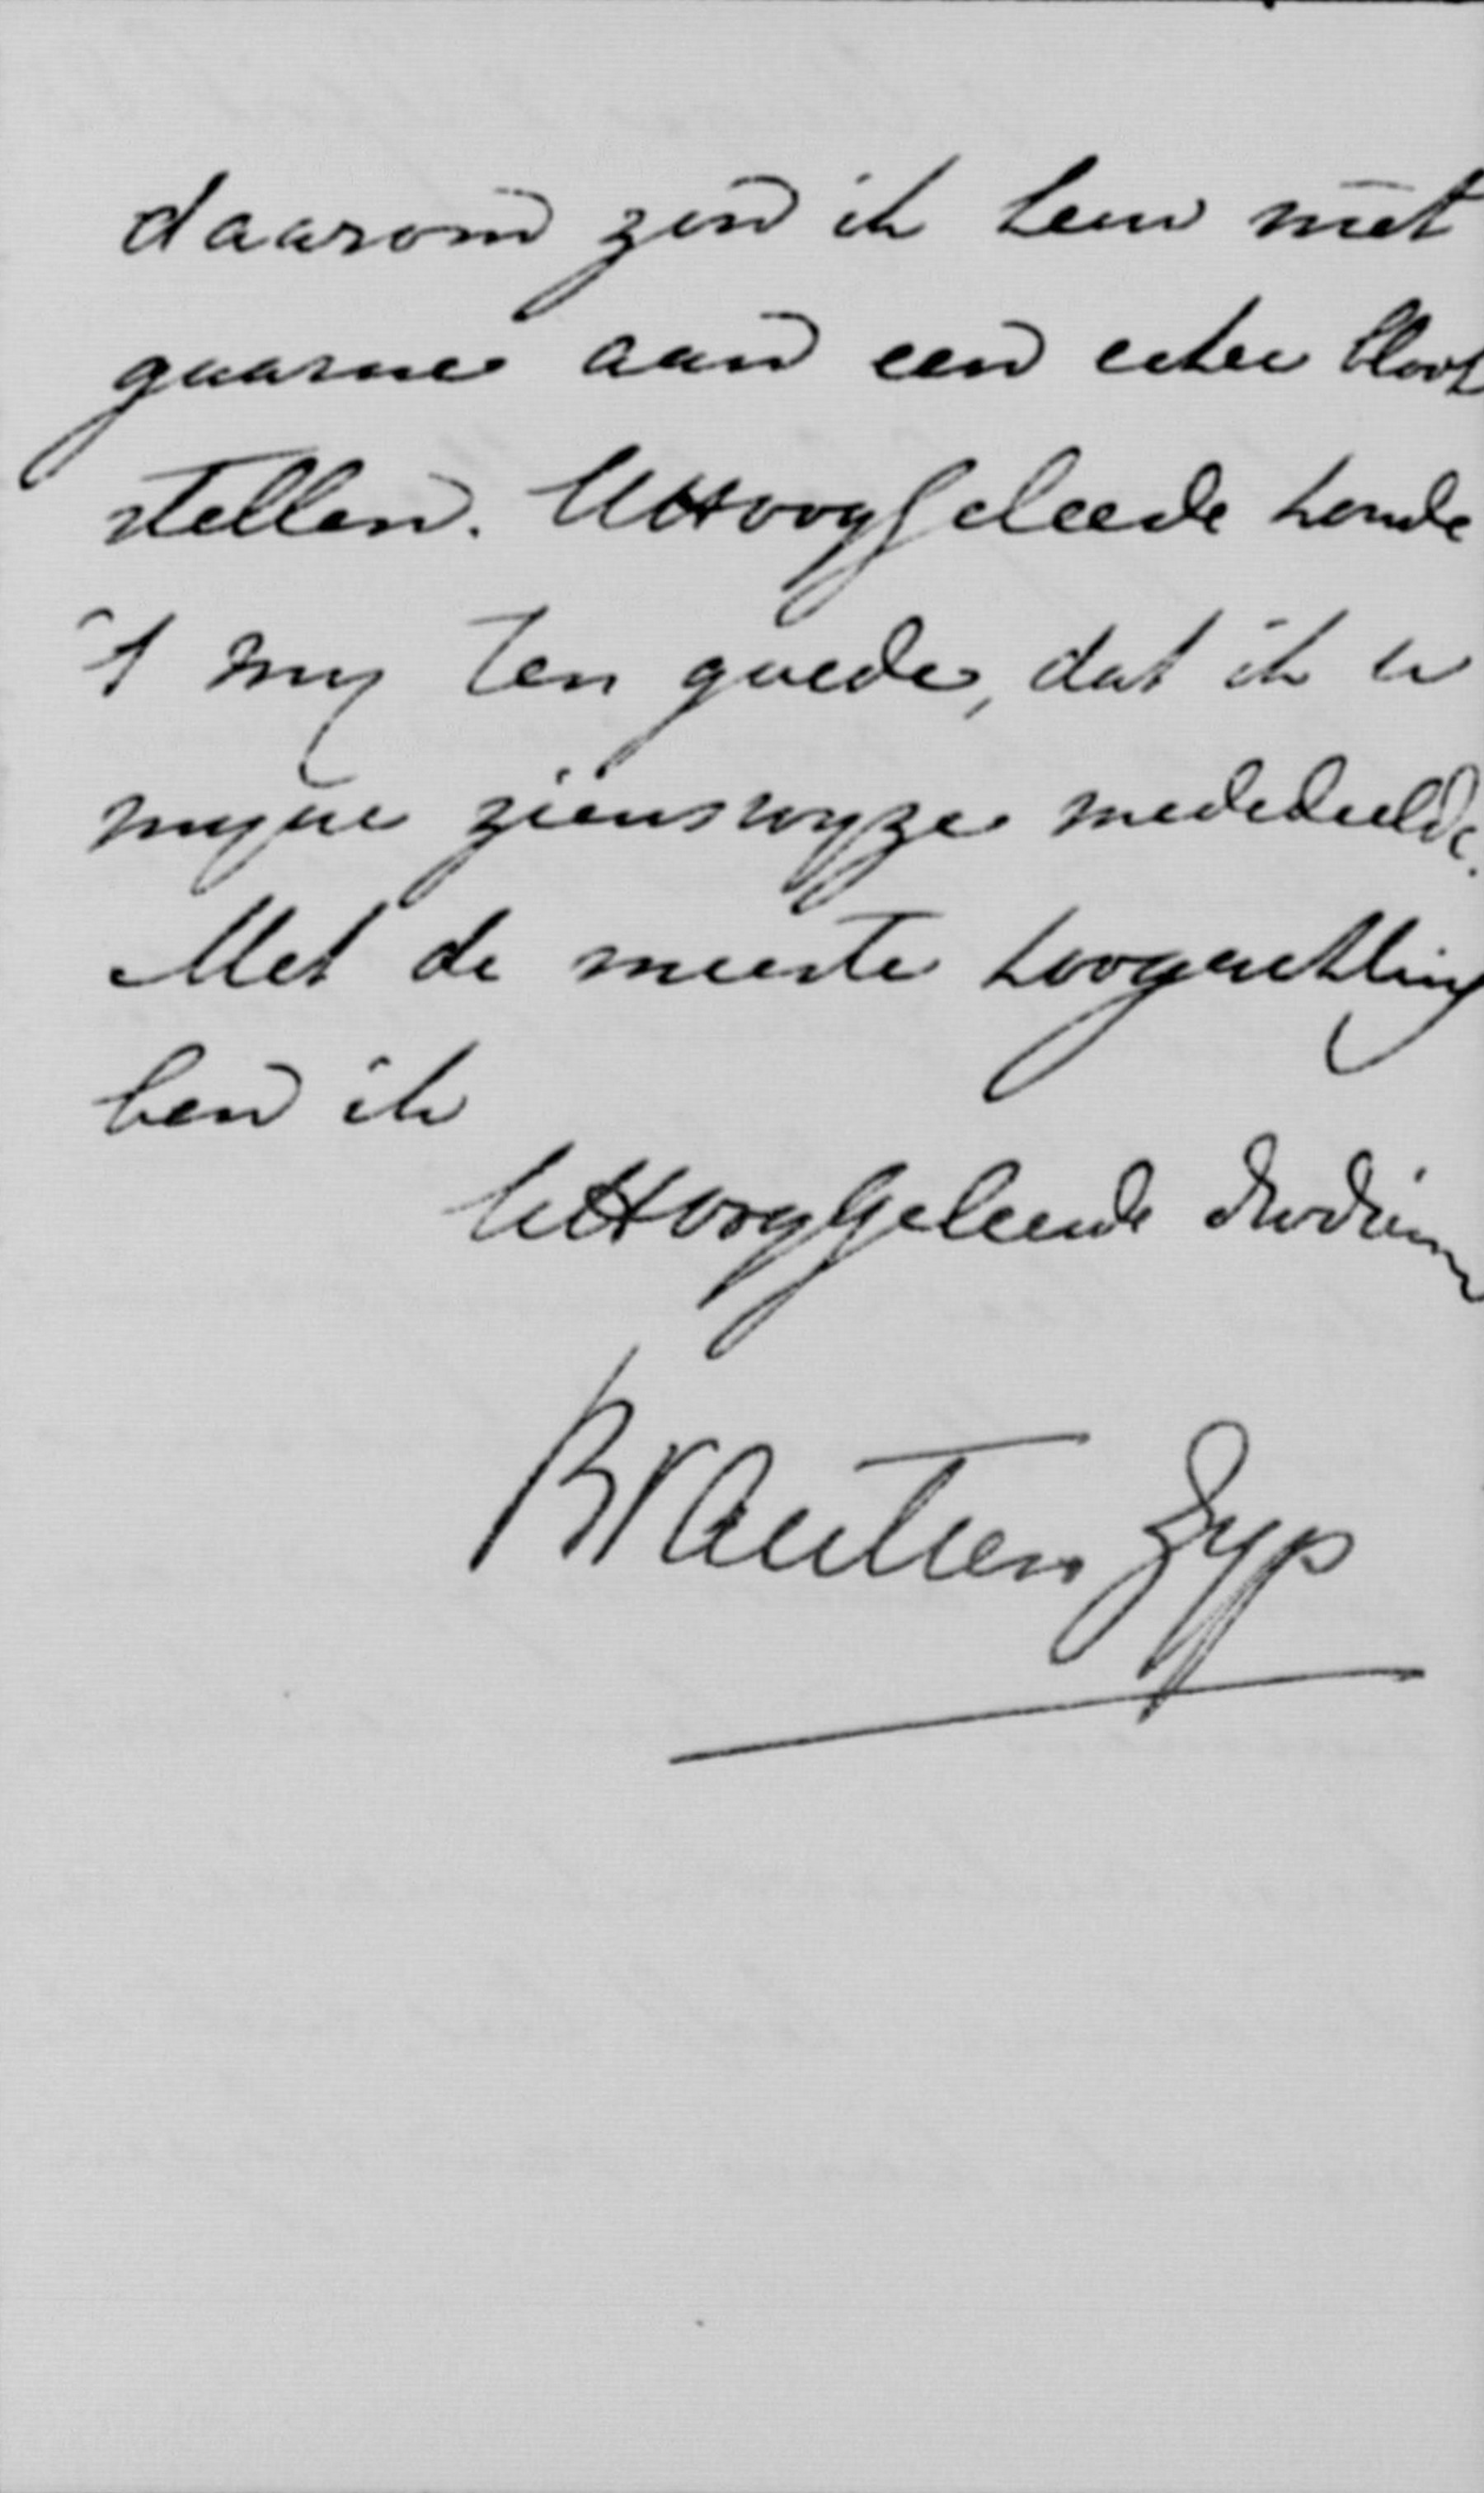 daarom zou ik hem niet
gaarne aan een echec bloot
stellen. UHooggeleerde houde
't my ten goede, dat ik U
myne zienswyze mededeelde.
Met de meeste hoogachting
ben ik
UHoogGeleerde dwdienr
Brautien Zyp